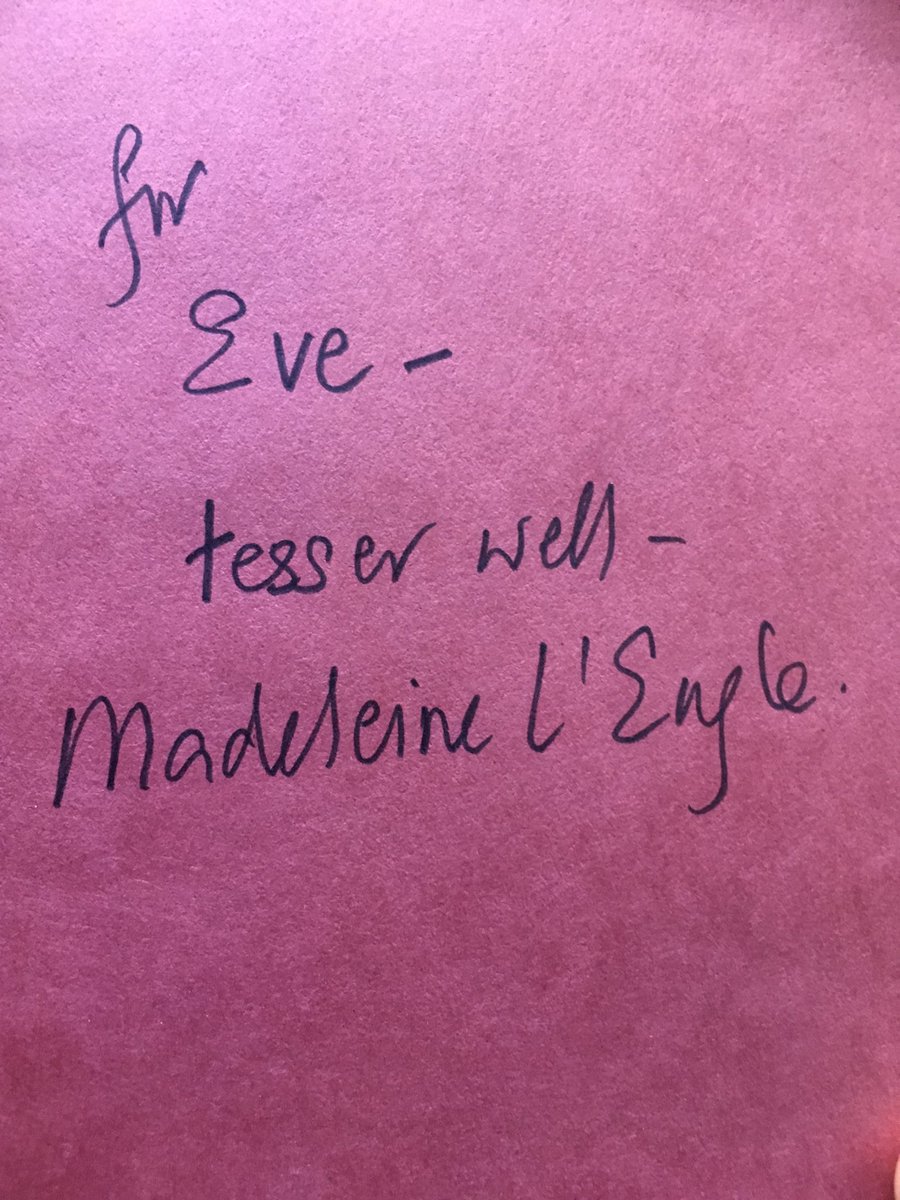 for
Eve -
tesser well -
Madeleine L'Engle.